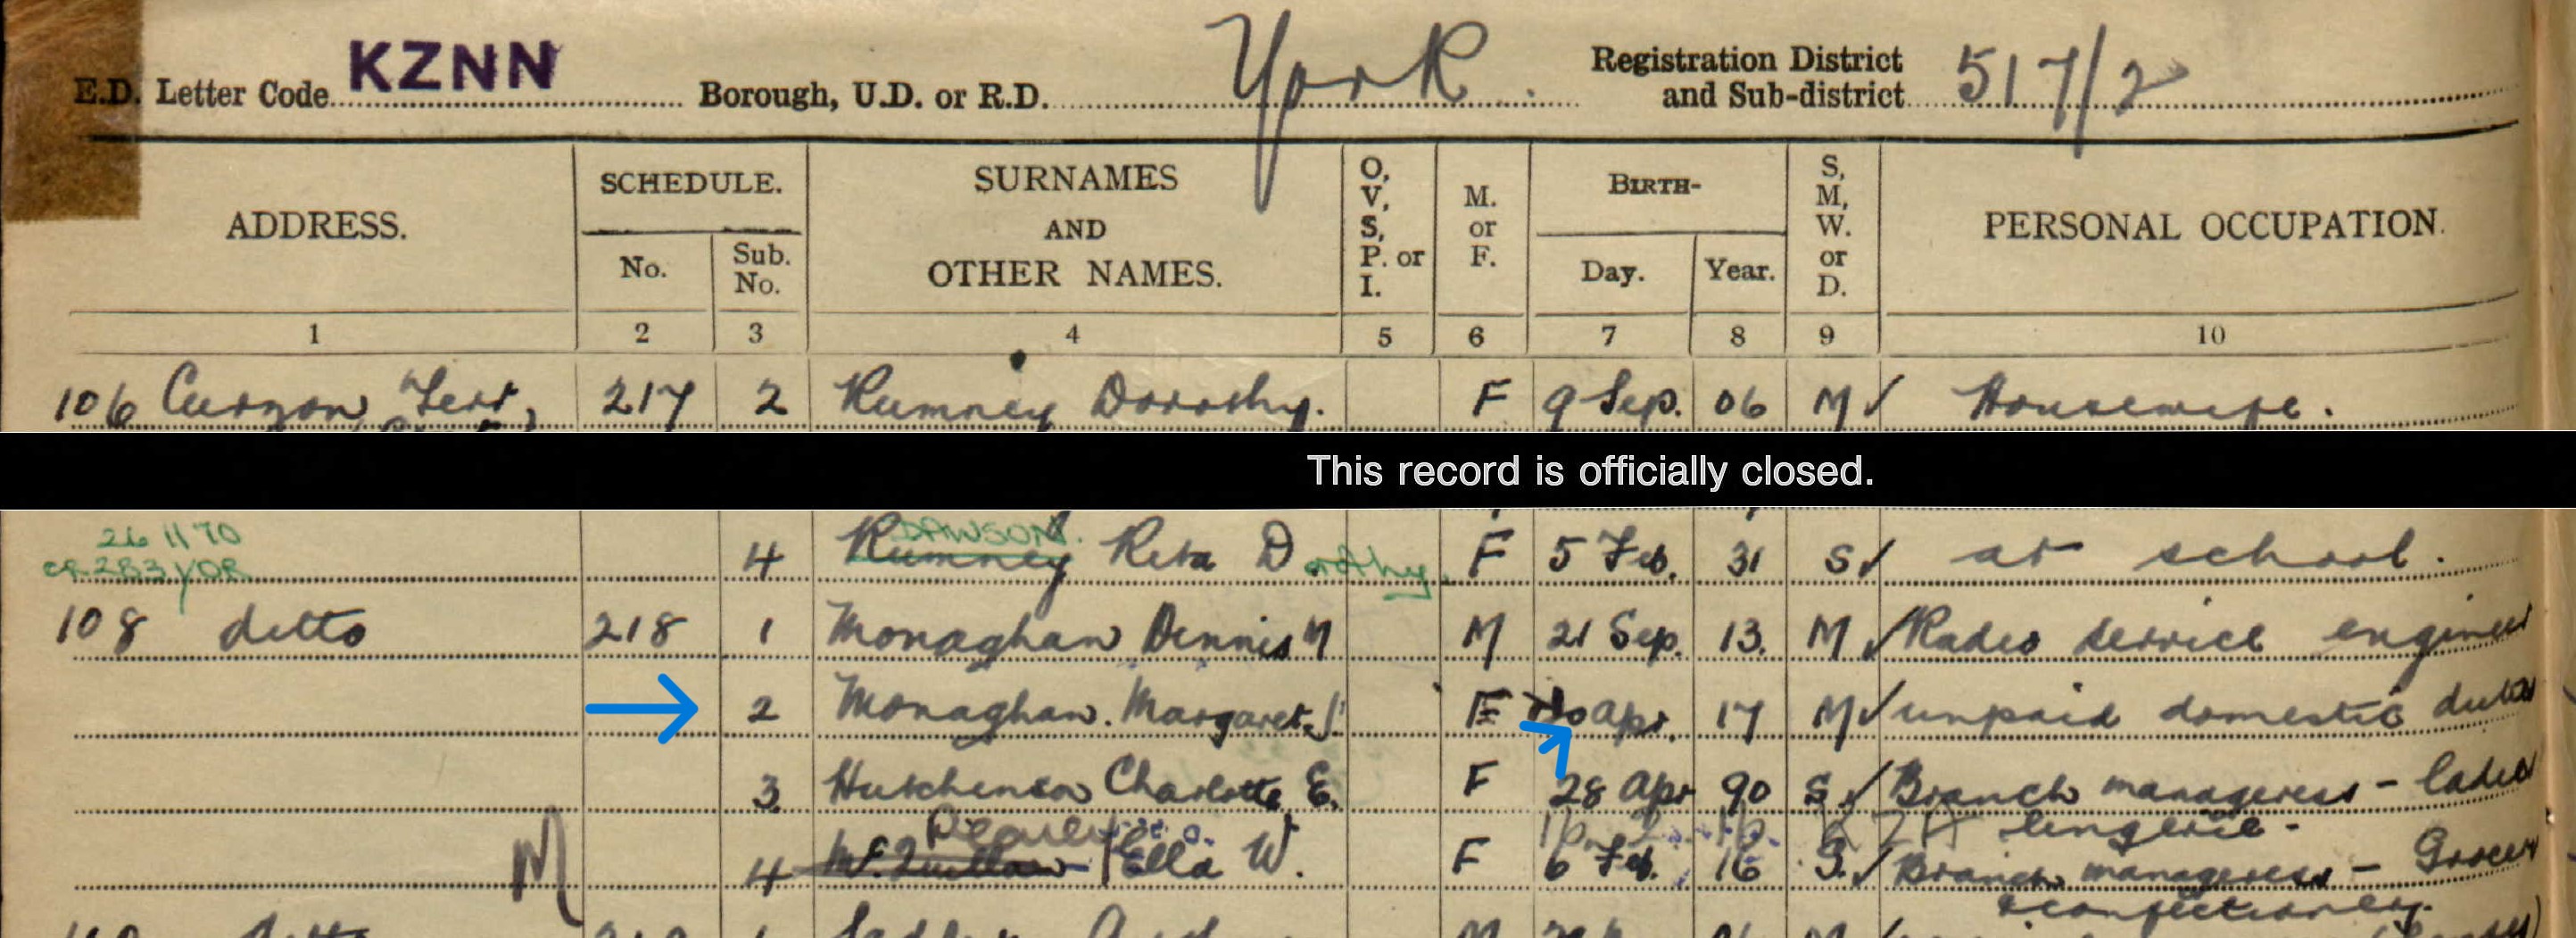 E.D. Letter Code KZNN Borough, U.D. or R.D. York Registration District and Sub-district 517/2
ADDRESS. SCHEDULE. No. Sub. No. SURNAMES AND OTHER NAMES. O, V, S, P. or I. M. or F. BIRTH- Day. Year. S, M, W. or D. PERSONAL OCCUPATION.
1 2 3 4 5 6 7 8 9 10
106 Curzon Terr, 217 2 Rumney Dorothy. F 9 Sep. 06 M ✓ Housewife.
This record is officially closed.
26 11 70 DAWSON.
CR 283 YOR 4 Rumney Rita D orothy. F 5 Feb. 31 S ✓ at school.
108 ditto 218 1 Monaghan Dennis M 21 Sep. 13. M ✓ Radio service engineer
2 Monaghan. Margaret J. F Apr. 17 M ✓ unpaid domestic duties
3 Hutchinson Charlotte E. F 28 Apr 90 S ✓ Branch manageress - Ladies
lingerie -
M 4 Ella W. F 6 Feb. 16 S. ✓ Branch manageress - Grocery
& confectionery.